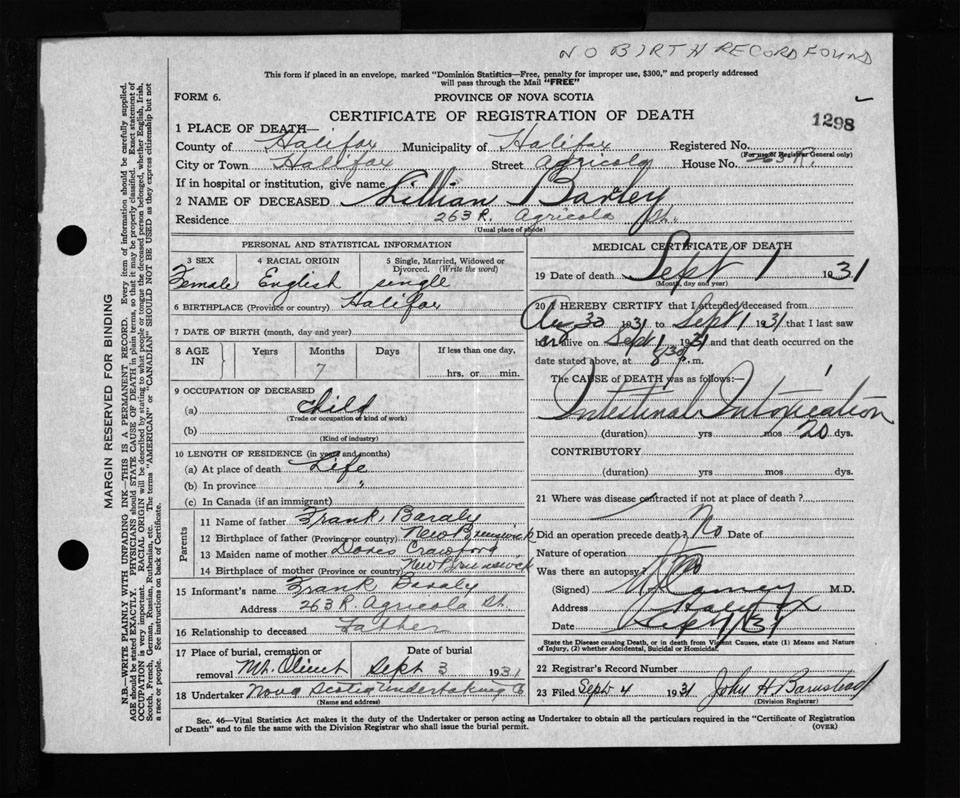 NO BIRTH RECORD FOUND
This form if placed in an envelope, marked "Dominion Statistics—Free, penalty for improper use, $300," and properly addressed
will pass through the Mail "FREE"
FORM 6.
PROVINCE OF NOVA SCOTIA
CERTIFICATE OF REGISTRATION OF DEATH
1298
1 PLACE OF DEATH—
County of Halifax Municipality of Halifax Registered No.
(For use of Registrar General only)
City or Town Halifax Street Agricola House No.
If in hospital or institution, give name
2 NAME OF DECEASED Lillian Baxley
Residence 263 R. Agricola St.
(Usual place of abode)
PERSONAL AND STATISTICAL INFORMATION
3 SEX 4 RACIAL ORIGIN 5 Single, Married, Widowed or
Divorced. (Write the word)
Female English single
6 BIRTHPLACE (Province or country) Halifax
7 DATE OF BIRTH (month, day and year)
8 AGE IN Years Months Days If less than one day,
7
hrs. or min.
9 OCCUPATION OF DECEASED
(a) Child
(Trade or occupation or kind of work)
(b)
(Kind of industry)
10 LENGTH OF RESIDENCE (in years and months)
(a) At place of death Life
(b) In province "
(c) In Canada (if an immigrant)
Parents
11 Name of father Frank Baraly
12 Birthplace of father (Province or country) New Brunswick
13 Maiden name of mother Dores Crawford
14 Birthplace of mother (Province or country) New Brunswick
15 Informant's name Frank Baraly
Address 263 R. Agricola St.
16 Relationship to deceased Father
17 Place of burial, cremation or removal Mt. Olivet
Date of burial Sept 3 1931
18 Undertaker Nova Scotia Undertaking Co
(Name and address)
MEDICAL CERTIFICATE OF DEATH
19 Date of death Sept 1 1931
(Month, day and year)
20 I HEREBY CERTIFY that I attended deceased from
Aug 30 1931 to Sept 1 1931 that I last saw
alive on Sept 1 1931 and that death occurred on the
date stated above, at 8 30 p.m.
The CAUSE OF DEATH was as follows:—
Intestinal Intoxication
(duration) yrs mos 20 dys.
CONTRIBUTORY
(duration) yrs. mos. dys.
21 Where was disease contracted if not at place of death?
Did an operation precede death? No Date of
Nature of operation
Was there an autopsy? No
(Signed) M.D.
Address Halifax
Date Sept 1/31
State the Disease causing Death, or in death from Violent Causes, state (1) Means and Nature
of Injury, (2) whether Accidental, Suicidal or Homicidal.
22 Registrar's Record Number
23 Filed Sept 4 1931 John H Barnstead
(Division Registrar)
Sec. 46—Vital Statistics Act makes it the duty of the Undertaker or person acting as Undertaker to obtain all the particulars required in the "Certificate of Registration
of Death" and to file the same with the Division Registrar who shall issue the burial permit.
(OVER)
MARGIN RESERVED FOR BINDING
N.B.—WRITE PLAINLY WITH UNFADING INK—THIS IS A PERMANENT RECORD. Every item of information should be carefully supplied.
AGE should be stated EXACTLY. PHYSICIANS should STATE CAUSE OF DEATH in plain terms, so that it may be properly classified. Exact statement of
OCCUPATION is very important. RACIAL ORIGIN will be described by stating to what people or tongue the deceased person belonged, whether English, Irish,
Scotch, French, German, Russian, Ruthenian, etc. The terms "AMERICAN" or "CANADIAN" SHOULD NOT BE USED as they express citizenship but not
a race or people. See instructions on back of Certificate.